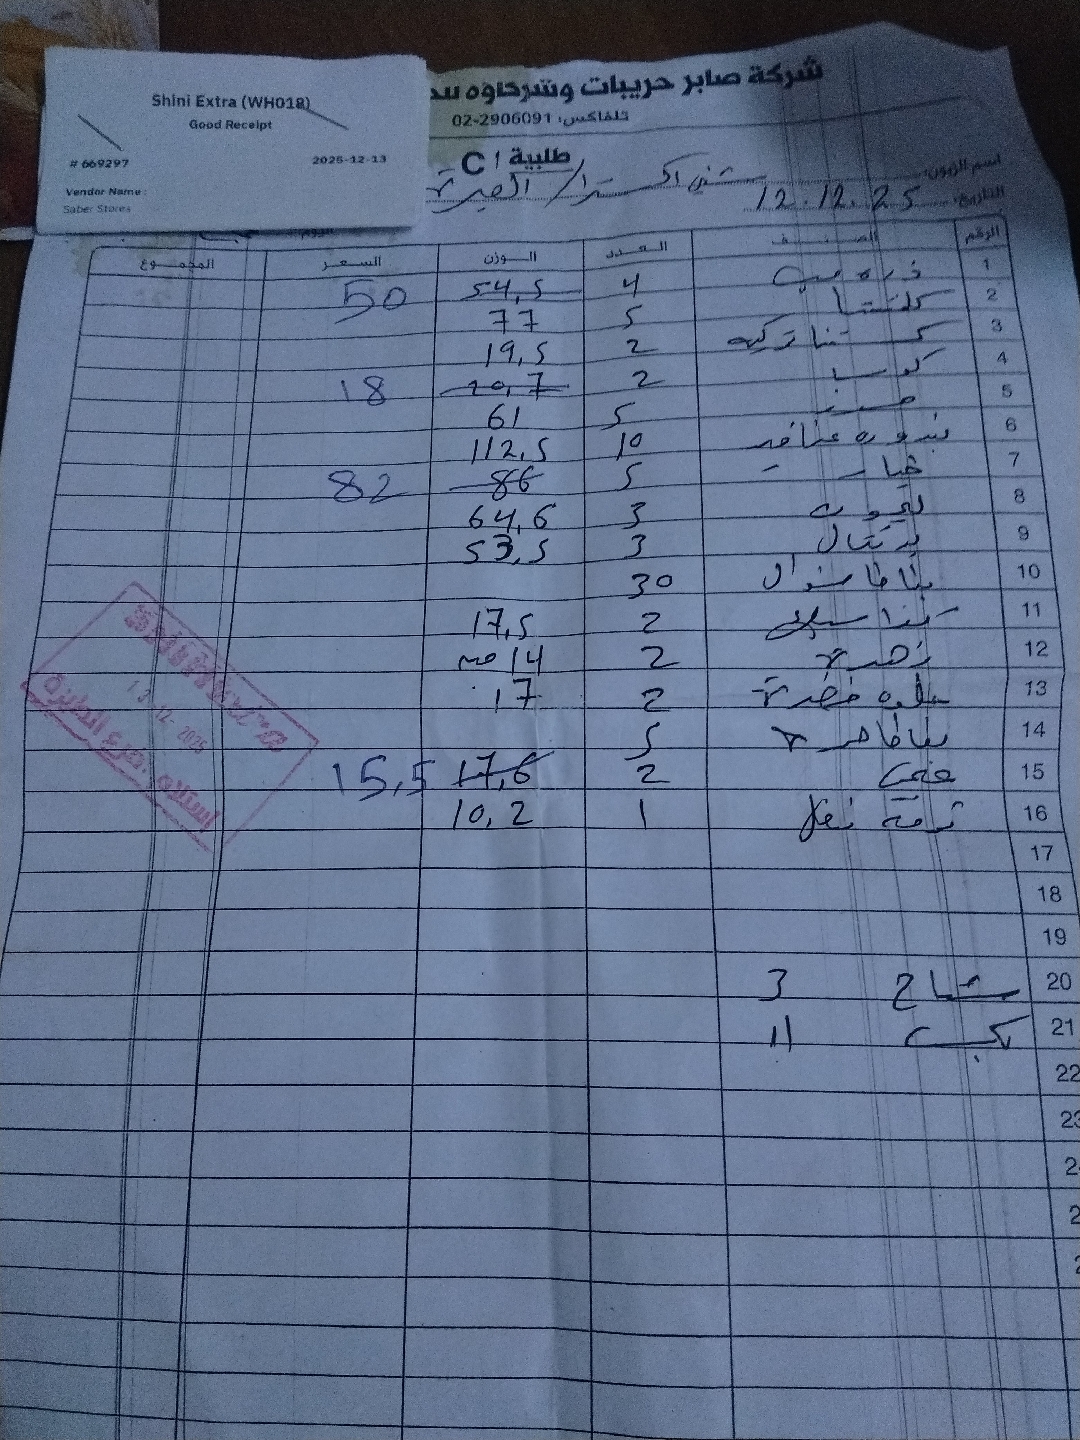 Shini Extra (WH018)
Good Receipt
# 669297 2025-12-13
Vendor Name :
Saber Stores
شركة صابر حريبات وشركاؤه
تلفاكس: 02-2906091
طلبية / C
اسم الزبون: شني اكسترا / البيرة
التاريخ: 12.12.25
الرقم الصنف العدد الوزن السعر المجموع
1 ذره حب 4 54,5 50
2 كلمنتينا 5 77
3 كستنا تركيه 2 19,5
4 كوسا 2 20,7 18
5 5 61
6 بندوره عناقيد 10 112,5
7 خيار 5 86 82
8 ليمون 3 64,6
9 برتقال 3 53,5
10 بطاطا 30
11 2 17,5
12 زهرة 2 14
13 حلوه خضرة 2 17
14 بطاطا 5
15 2 17,6 15,5
16 1 10,2
17
18
19
20 مشاح 3
21 بكب 11
22
13-12-2025